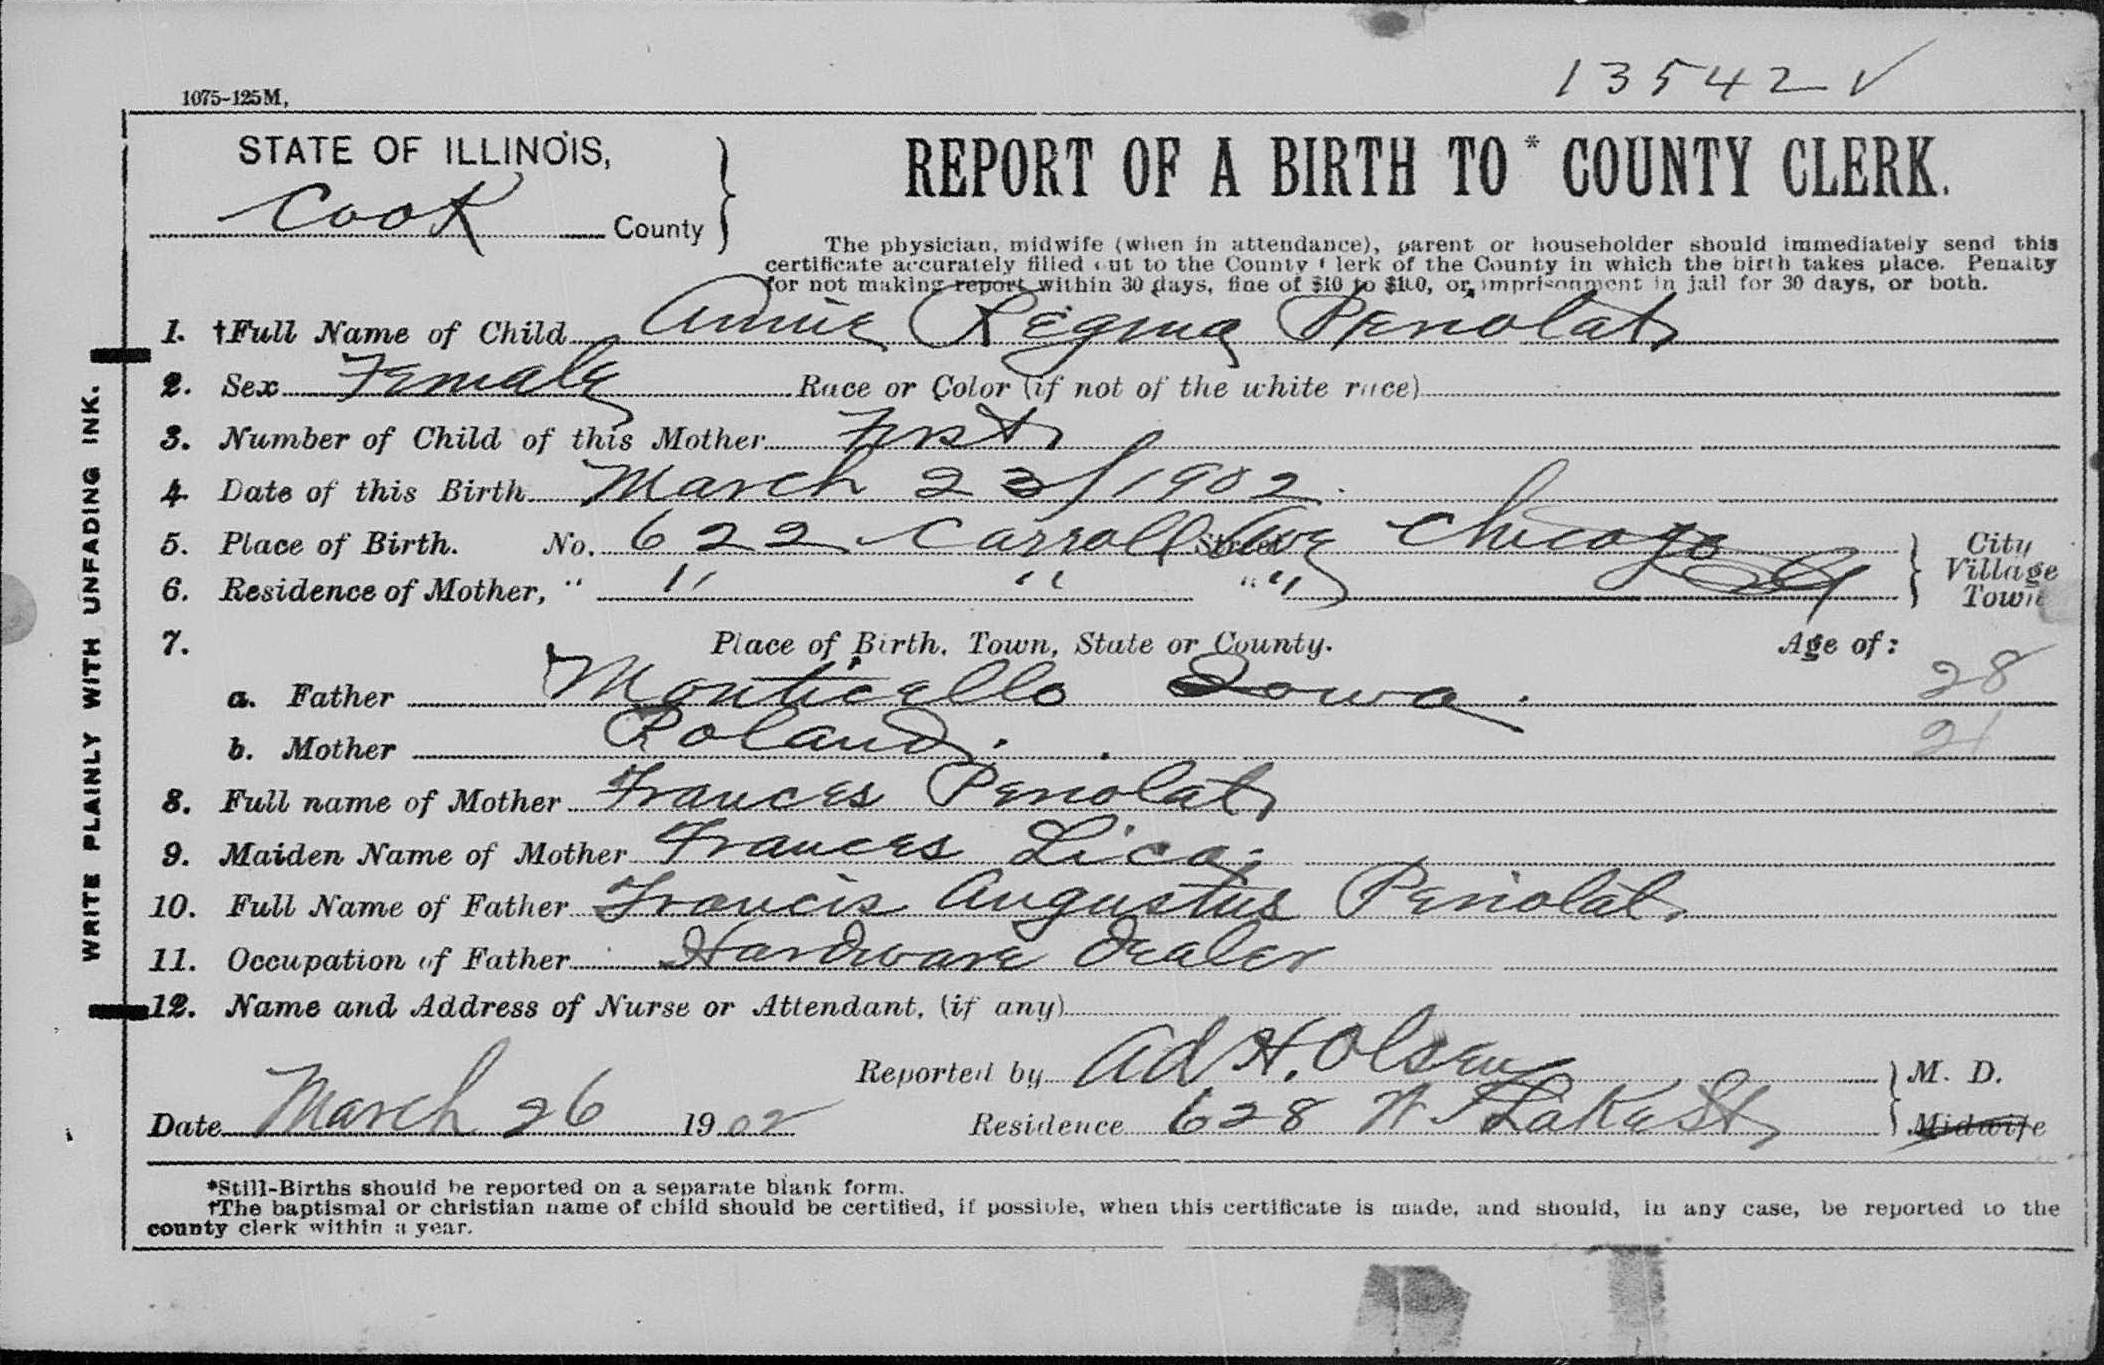 13542 ✓
1075-125M,
STATE OF ILLINOIS,
Cook County
REPORT OF A BIRTH TO * COUNTY CLERK.
The physician, midwife (when in attendance), parent or householder should immediately send this
certificate accurately filled out to the County Clerk of the County in which the birth takes place. Penalty
for not making report within 30 days, fine of $10 to $100, or imprisonment in jail for 30 days, or both.
WRITE PLAINLY WITH UNFADING INK.
1. †Full Name of Child Annie Regina Penolat
2. Sex Female Race or Color (if not of the white race)
3. Number of Child of this Mother First
4 Date of this Birth March 23/1902.
5. Place of Birth. No. 622 Carroll Street Ave Chicago City
6. Residence of Mother, " " " " " Village
Town
7. Place of Birth, Town, State or County. Age of:
a. Father Monticello Iowa. 28
b. Mother Poland. 21
8. Full name of Mother Frances Penolat
9. Maiden Name of Mother Frances Lica
10. Full Name of Father Francis Augustus Penolat.
11. Occupation of Father Hardware Dealer
12. Name and Address of Nurse or Attendant, (if any)
Reported by Ad. H. Olsen M. D.
Date March 26 1902 Residence 628 W. Lake St Midwife
*Still-Births should be reported on a separate blank form.
†The baptismal or christian name of child should be certified, if possible, when this certificate is made, and should, in any case, be reported to the
county clerk within a year.